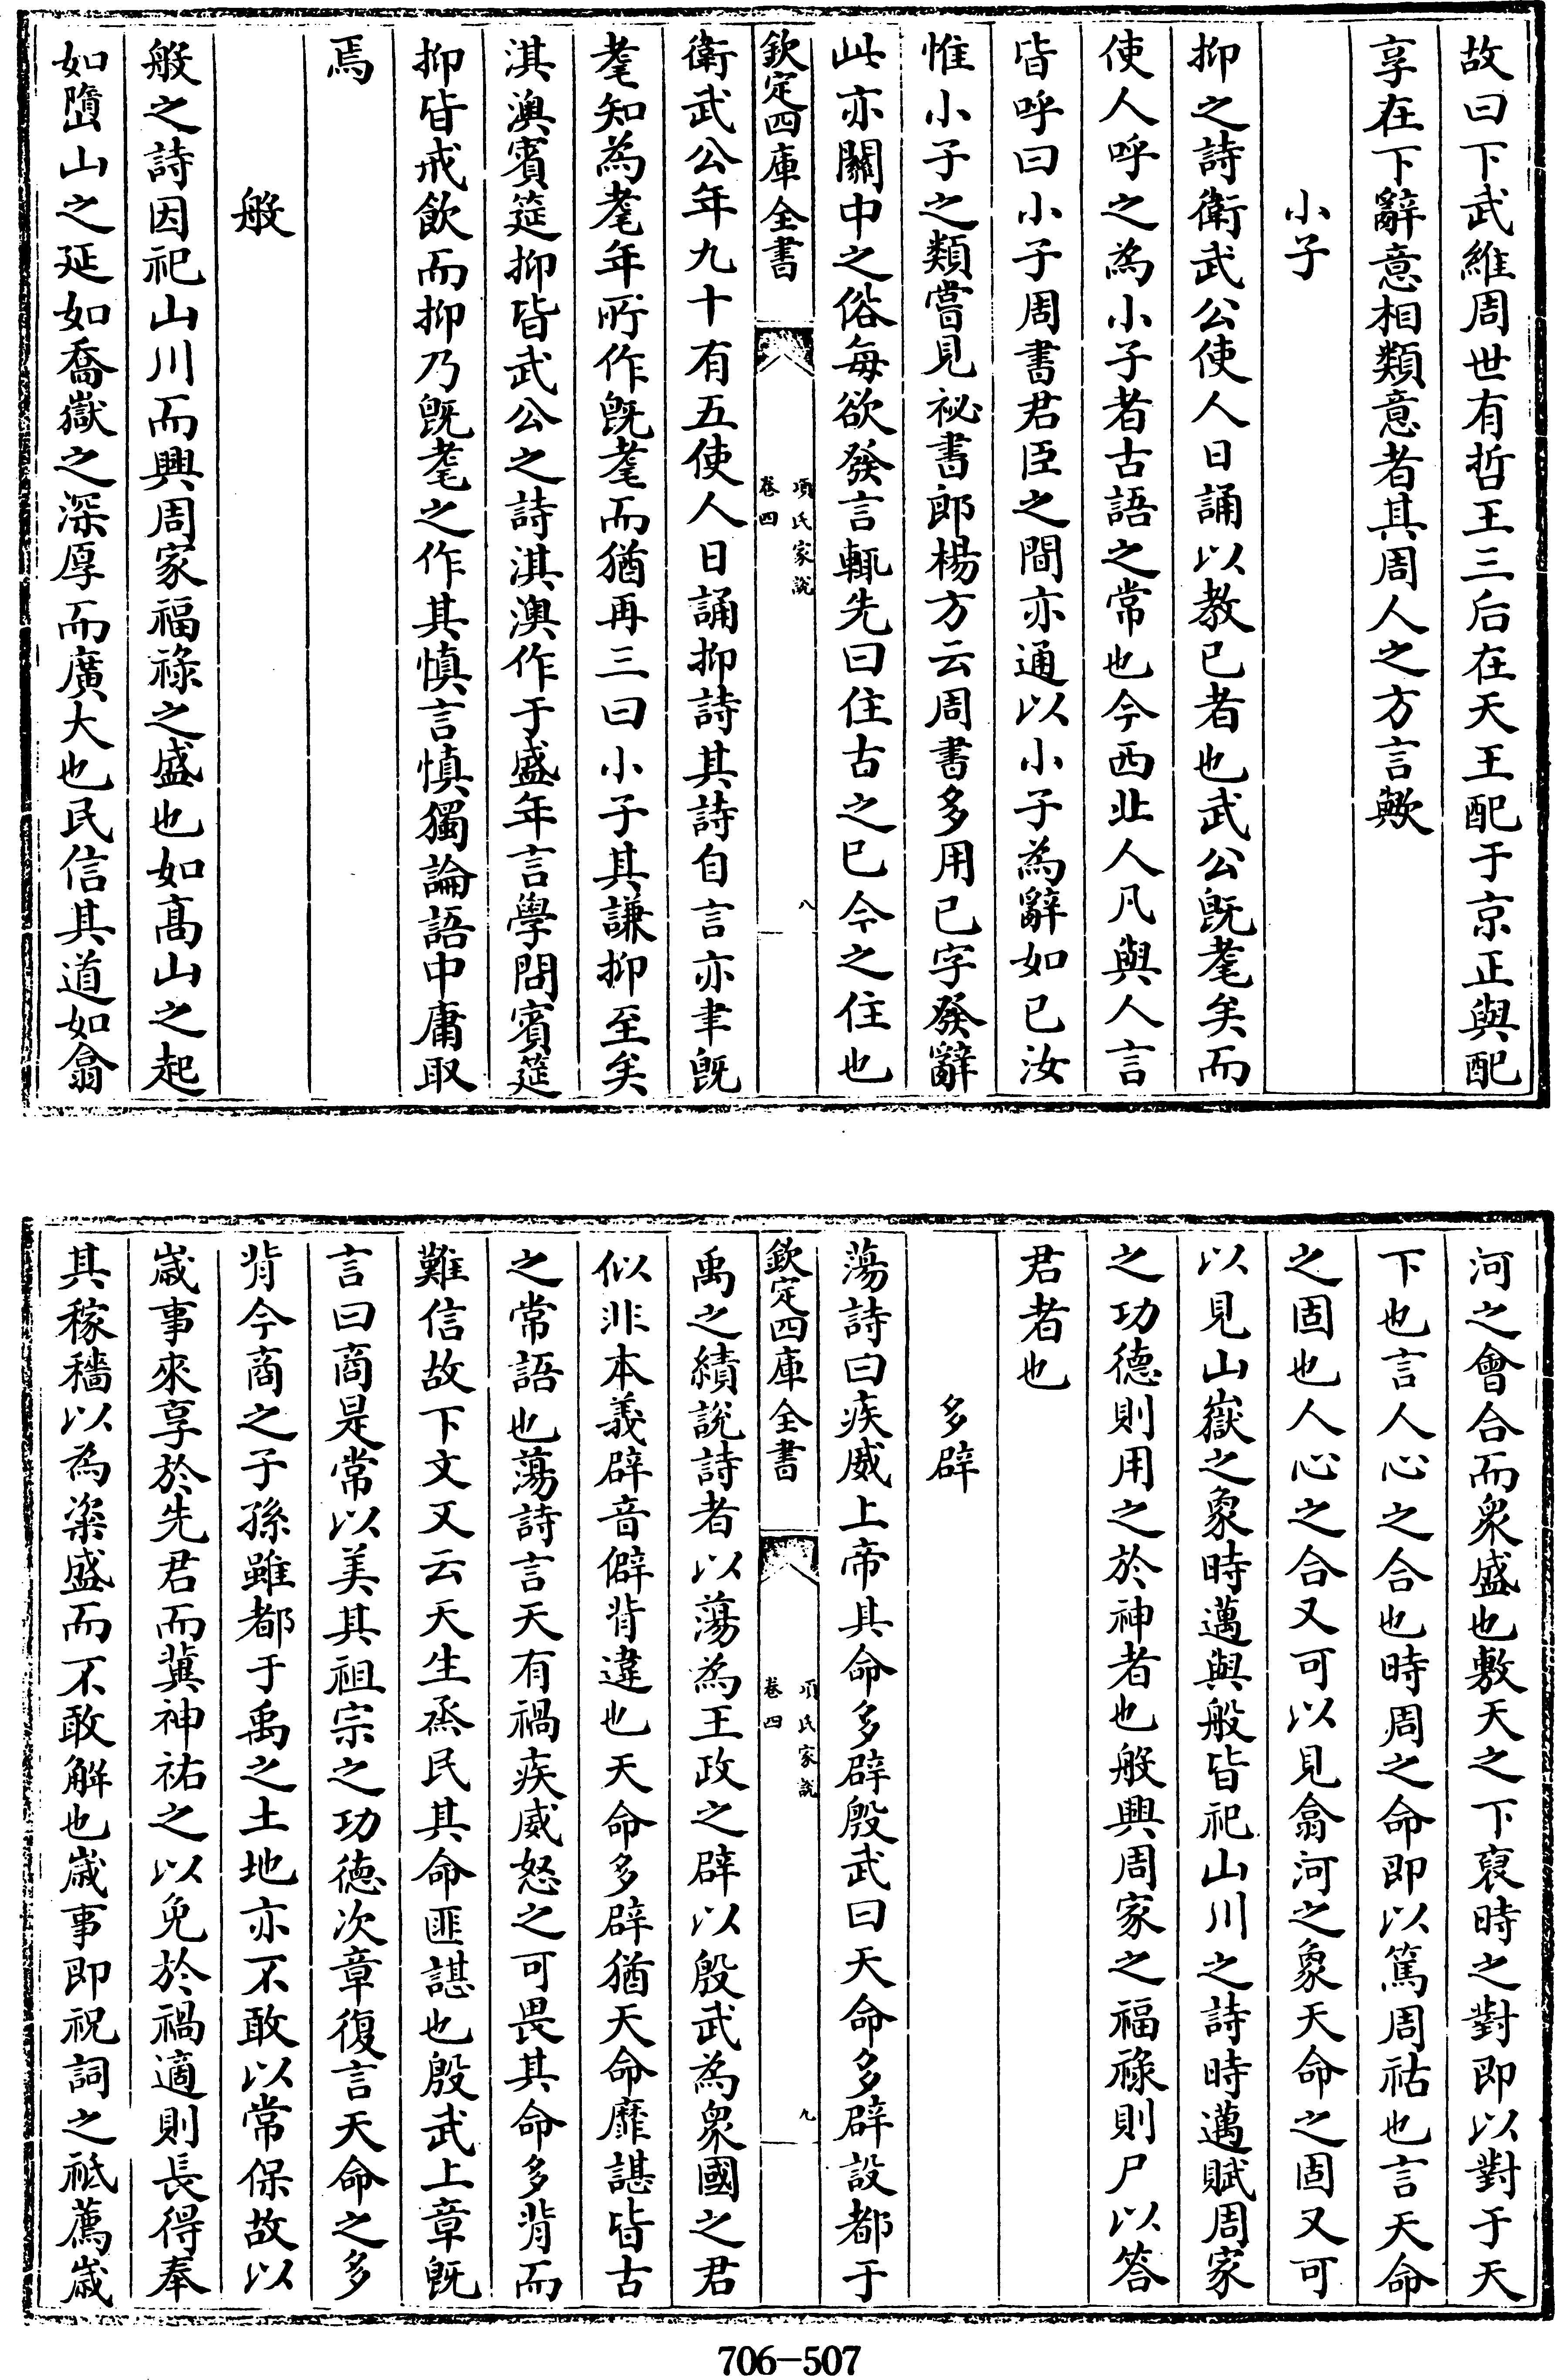 故曰下武維周世有哲王三后在天王配于京正與配
享在下辭意相類意者其周人之方言歟
小子
抑之詩衛武公使人日誦以教已者也武公既耄矣而
使人呼之為小子者古語之常也今西北人凡與人言
皆呼曰小子周書君臣之間亦通以小子為辭如已汝
惟小子之類嘗見祕書郎楊方云周書多用已字發辭
此亦關中之俗每欲發言輒先曰住古之已今之住也
欽定四庫全書
項氏家說
卷四
八
衛武公年九十有五使人日誦抑詩其詩自言亦聿既
耄知為耄年所作既耄而猶再三曰小子其謙抑至矣
淇澳賓筵抑皆武公之詩淇澳作于盛年言學問賓筵
抑皆戒飲而抑乃既耄之作其慎言慎獨論語中庸取
焉
般
般之詩因祀山川而興周家福祿之盛也如高山之起
如墮山之延如喬嶽之深厚而廣大也民信其道如翕
河之會合而衆盛也敷天之下裒時之對即以對于天
下也言人心之合也時周之命即以篤周祜也言天命
之固也人心之合又可以見翕河之象天命之固又可
以見山嶽之象時邁與般皆祀山川之詩時邁賦周家
之功德則用之於神者也般興周家之福祿則尸以答
君者也
多辟
蕩詩曰疾威上帝其命多辟殷武曰天命多辟設都于
欽定四庫全書
項氏家說
卷四
九
禹之績說詩者以蕩為王政之辟以殷武為衆國之君
似非本義辟音僻背違也天命多辟猶天命靡諶皆古
之常語也蕩詩言天有禍疾威怒之可畏其命多背而
難信故下文又云天生烝民其命匪諶也殷武上章既
言曰商是常以美其祖宗之功徳次章復言天命之多
背今商之子孫雖都于禹之土地亦不敢以常保故以
歲事來享於先君而冀神祐之以免於禍適則長得奉
其稼穡以為粢盛而不敢解也歲事即祝詞之祗薦歲
706-507